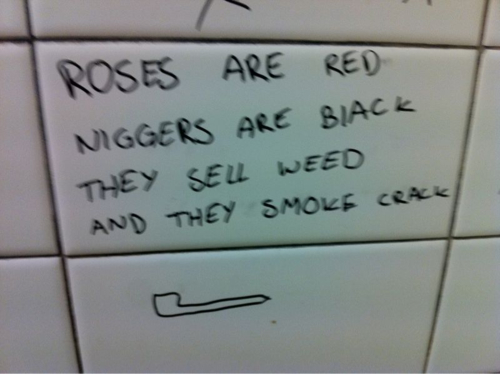 ROSES ARE RED
NIGGERS ARE BLACK
THEY SELL WEED
AND THEY SMOKE CRACK